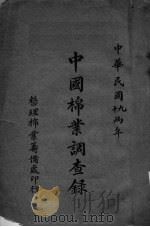 中華民國九十兩年
中國棉業調查錄
整理棉業籌備處印行